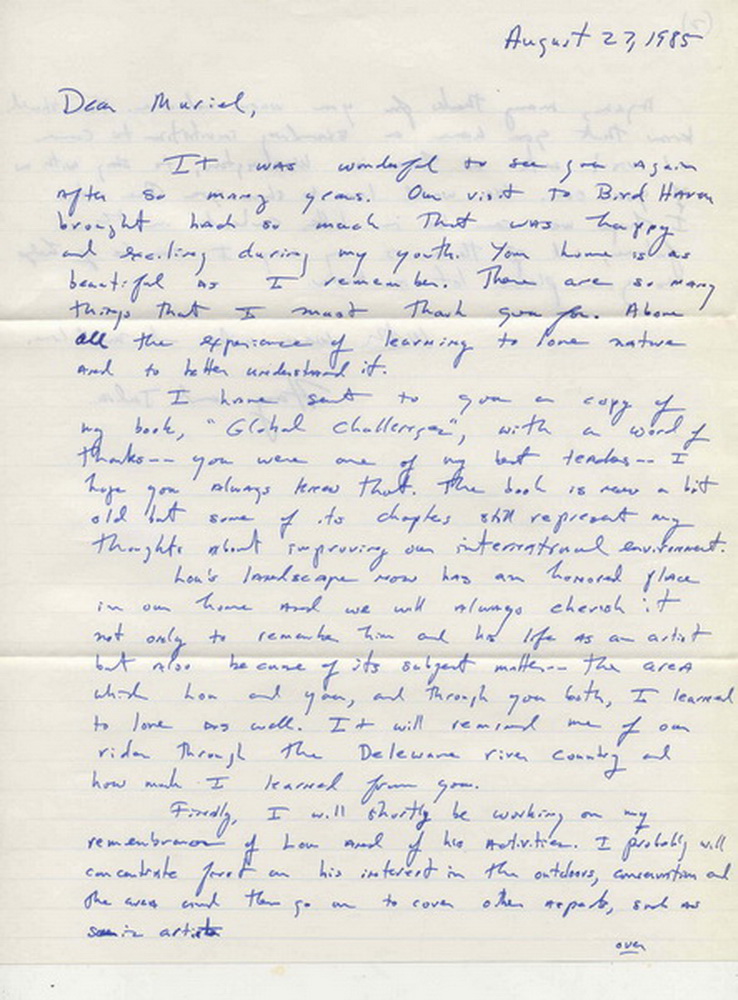 August 27, 1985
Dear Muriel,
It was wonderful to see you again
after so many years. Our visit to Bird Haven
brought back so much that was happy
and exciting during my youth. Your home is as
beautiful as I remember. There are so many
things that I must thank you for. Above
all the experience of learning to love nature
and to better understand it.
I have sent to you a copy of
my book, "Global Challenges", with a word of
thanks -- you were one of my best teachers -- I
hope you always knew that. The book is now a bit
old but some of its chapters still represent my
thoughts about improving our international environment.
Lou's landscape now has an honored place
in our home and we will always cherish it
not only to remember him and his life as an artist
but also because of its subject matter -- the area
which Lou and you, and through you both, I learned
to love as well. It will remind me of our
rides through the Deleware river country and
how much I learned from you.
Finally, I will shortly be working on my
remembrance of Lou and of his activities. I probably will
concentrate first on his interest in the outdoors, conservation and
the area and then go on to cover other aspects, such as
artist
over